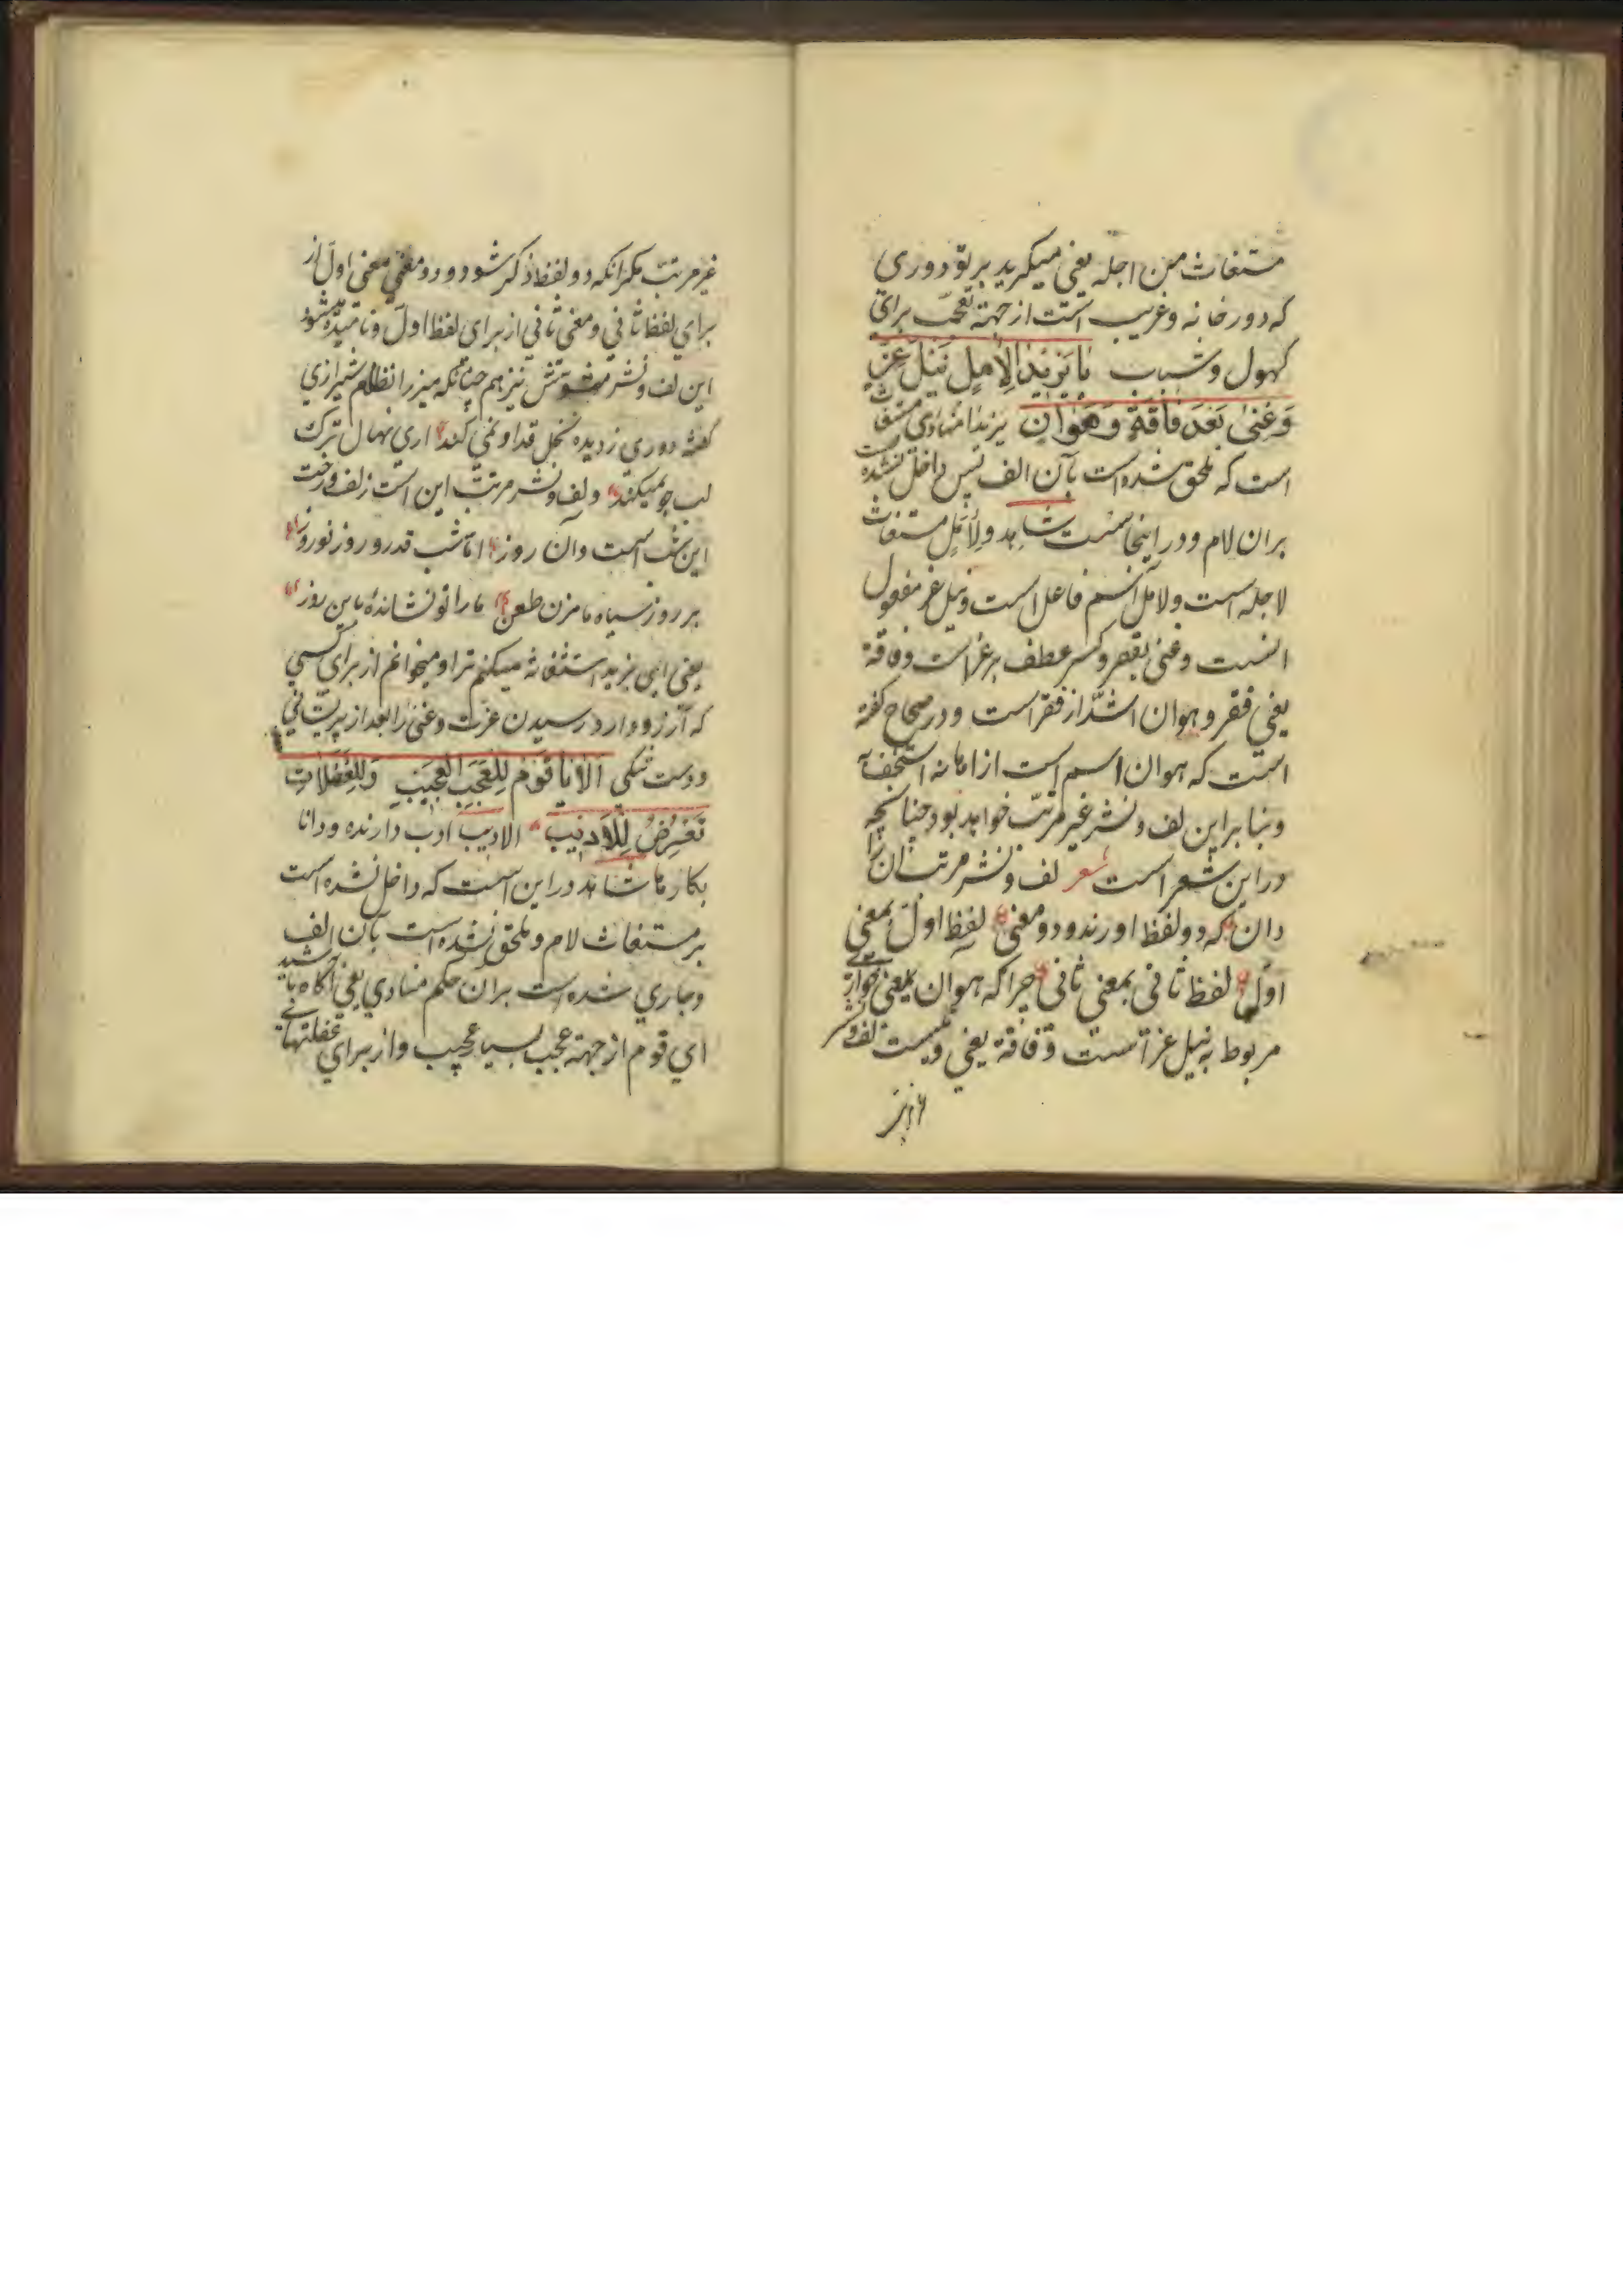 مستغاث من اجله یعنی میگرید بر تو دوری
که دور خانه و غریب است از جهته تعجب برای
کهول و شباب یا یَزیدا لِآمِلٍ نَیلَ عِزٍّ
وَغِنیً بَعدَ فاقَةٍ وَهَوانٍ یزیدا منادی مستغاث
است که ملحق شده است بآن الف پس داخل نشده است
بران لام و در اینجاست شاهد و لآمل مستغاث
لاجله است و لامل اسم فاعل است و نیل عز مفعول
انست و غنی بقصر و کسر عطف بر عز است و فاقة
یعنی فقر و هوان اشدّ از فقر است و در صحاح گفته
است که هوان اسم است از اهانه استخف به
و بنا براین لف و نشر غیر مرتّب خواهد بود چنانچه
در این شعر است شعر لف و نشر مرتب آن را
دان که دو لفظ اورند و دو معنی لفظ اول بمعنی
اول لفظ ثانی بمعنی ثانی چرا که هوان بمعنی خواری
مربوط به نیل عز است و فاقة یعنی لف و نشر
غیر
غیر مرتب مگر انکه دو لفظ ذکر شود و دو معنی معنی اول از
برای لفظ ثانی و معنی ثانی از برای لفظ اول و نامیده میشود
این لف و نشر مشوش نیز هم چنانکه میرزا نظام شیرازی
گفته دوری ز دیده نخل قد او نمی کند اری نهال ترک
لب جو نمیکند و لف و نشر مرتب این است زلف و رخت
این شب است وان روز اما شب قدر و روز نوروز
بر روز سیاه ما مزن طعن ما را تو نشاندهٔ باین روز
یعنی ای یزید استغاثه میکنم ترا و میخوانم از برای کسی
که آرزو دارد رسیدن عزت و غنی را بعد از پریشانی
و دست تنکی اَلا یا قَومِ لِلعَجَبِ العَجیبِ وَلِلغَفَلاتِ
تَعرِضُ لِلاَدیبِ الادیب ادب دارنده و دانا
بکارها شاهد در این است که داخل نشده است
بر مستغاث لام و ملحق نشده است بآن الف
و جاری شده است بران حکم منادی یعنی آگاه باشید
ای قوم از جهته عجب بسیار عجیب و از برای غفلتهائی